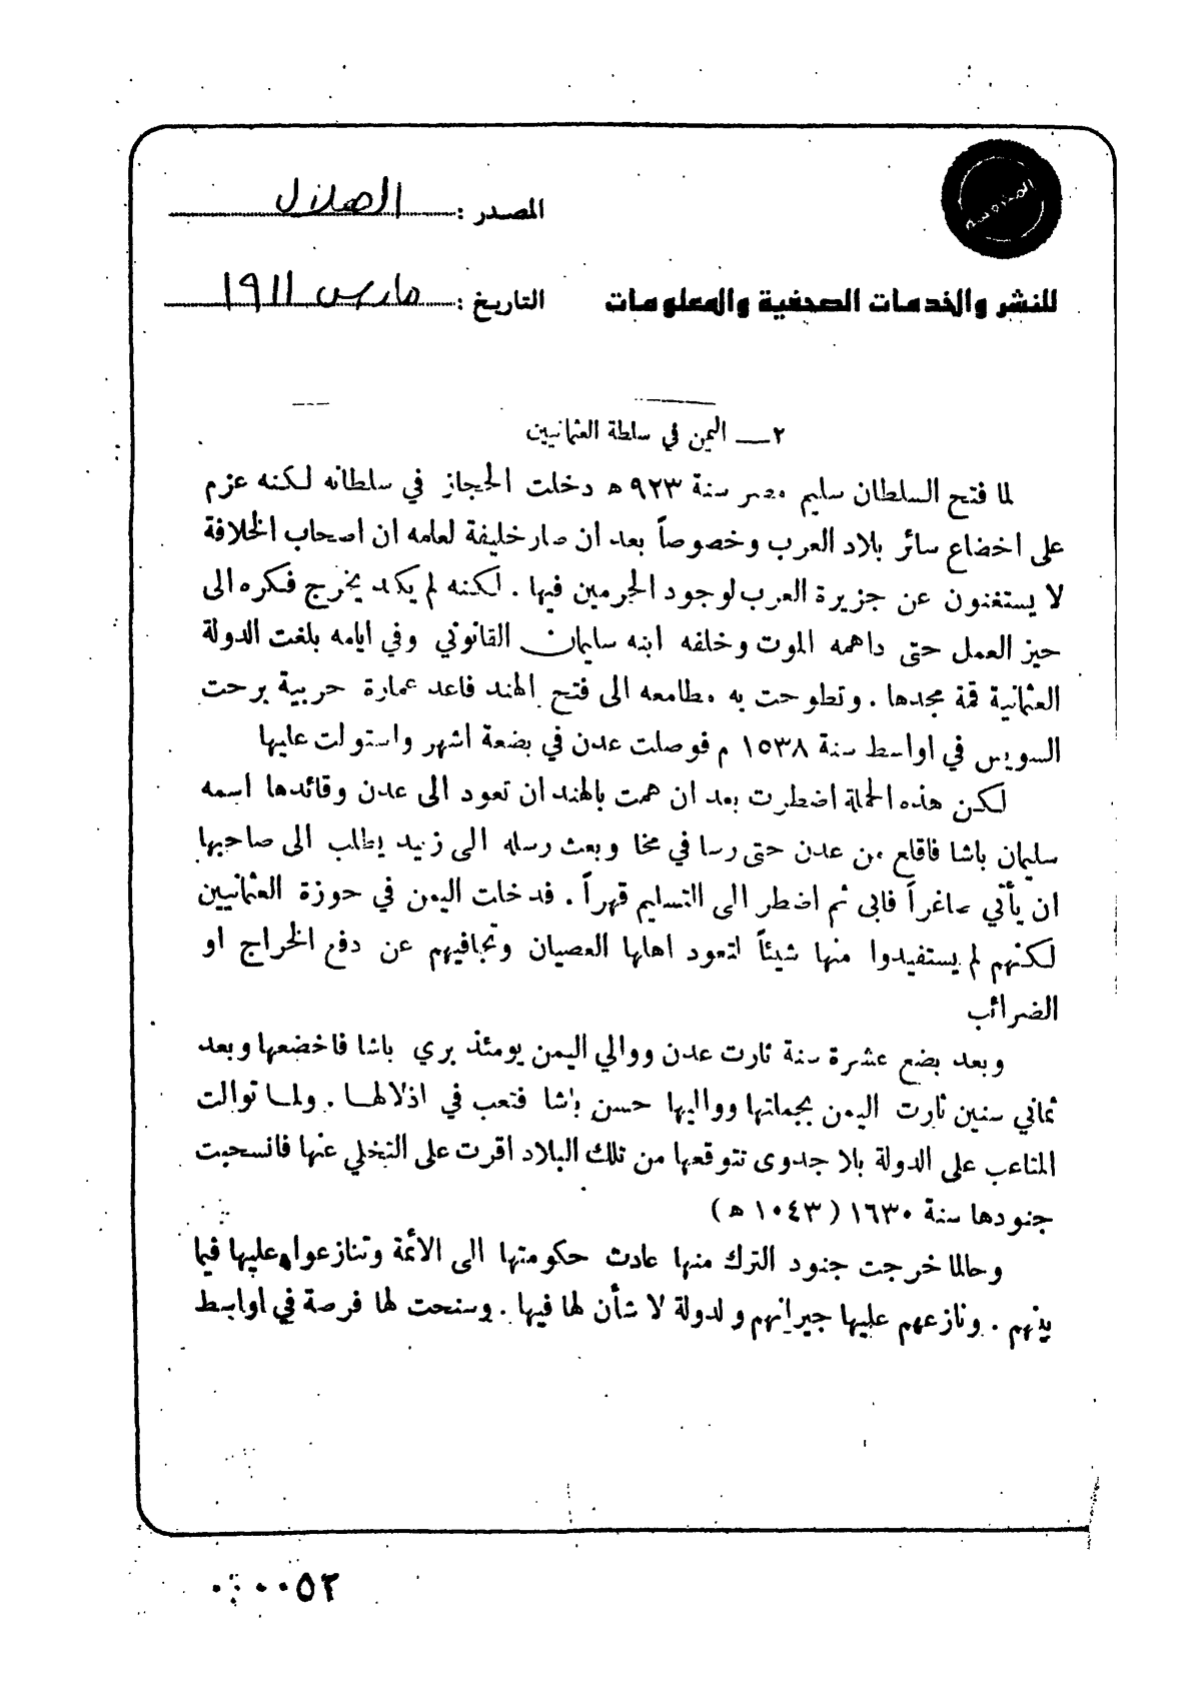 المحروسة
المصدر : الهلال
للنشر والخدمات الصحفية والمعلومات
التاريخ : مارس ١٩١١
٢ — اليمن في سلطة العثمانيين
لما فتح السلطان سليم مصر سنة ٩٢٣ ه دخلت الحجاز في سلطانه لكنه عزم
على اخضاع سائر بلاد العرب وخصوصاً بعد ان صار خليفة لعلمه ان اصحاب الخلافة
لا يستغنون عن جزيرة العرب لوجود الحرمين فيها . لكنه لم يكد يخرج فكره الى
حيز العمل حتى داهمه الموت وخلفه ابنه سليمان القانوني وفي ايامه بلغت الدولة
العثمانية قمة مجدها . وتطوحت به مطامعه الى فتح الهند فاعد عمارة حربية برحت
السويس في اواسط سنة ١٥٣٨ م فوصلت عدن في بضعة اشهر واستولت عليها
لكن هذه الحملة اضطرت بعد ان همت بالهند ان تعود الى عدن وقائدها اسمه
سليمان باشا فاقلع من عدن حتى رسا في مخا وبعث رسله الى زبيد يطلب الى صاحبها
ان يأتي صاغراً فابى ثم اضطر الى التسليم قهراً . فدخلت اليمن في حوزة العثمانيين
لكنهم لم يستفيدوا منها شيئاً لتعود اهلها العصيان وتجافيهم عن دفع الخراج او
الضرائب
وبعد بضع عشرة سنة ثارت عدن ووالي اليمن يومئذ بري باشا فاخضعها وبعد
ثماني سنين ثارت اليمن بجملتها وواليها حسن باشا فتعب في اذلالها . ولما توالت
المتاعب على الدولة بلا جدوى تتوقعها من تلك البلاد اقرت على التخلي عنها فانسحبت
جنودها سنة ١٦٣٠ ( ١٠٤٣ ه )
وحالما خرجت جنود الترك منها عادت حكومتها الى الائمة وتنازعوا عليها فيما
بينهم . ونازعهم عليها جيرانهم والدولة لا شأن لها فيها . وسنحت لها فرصة في اواسط